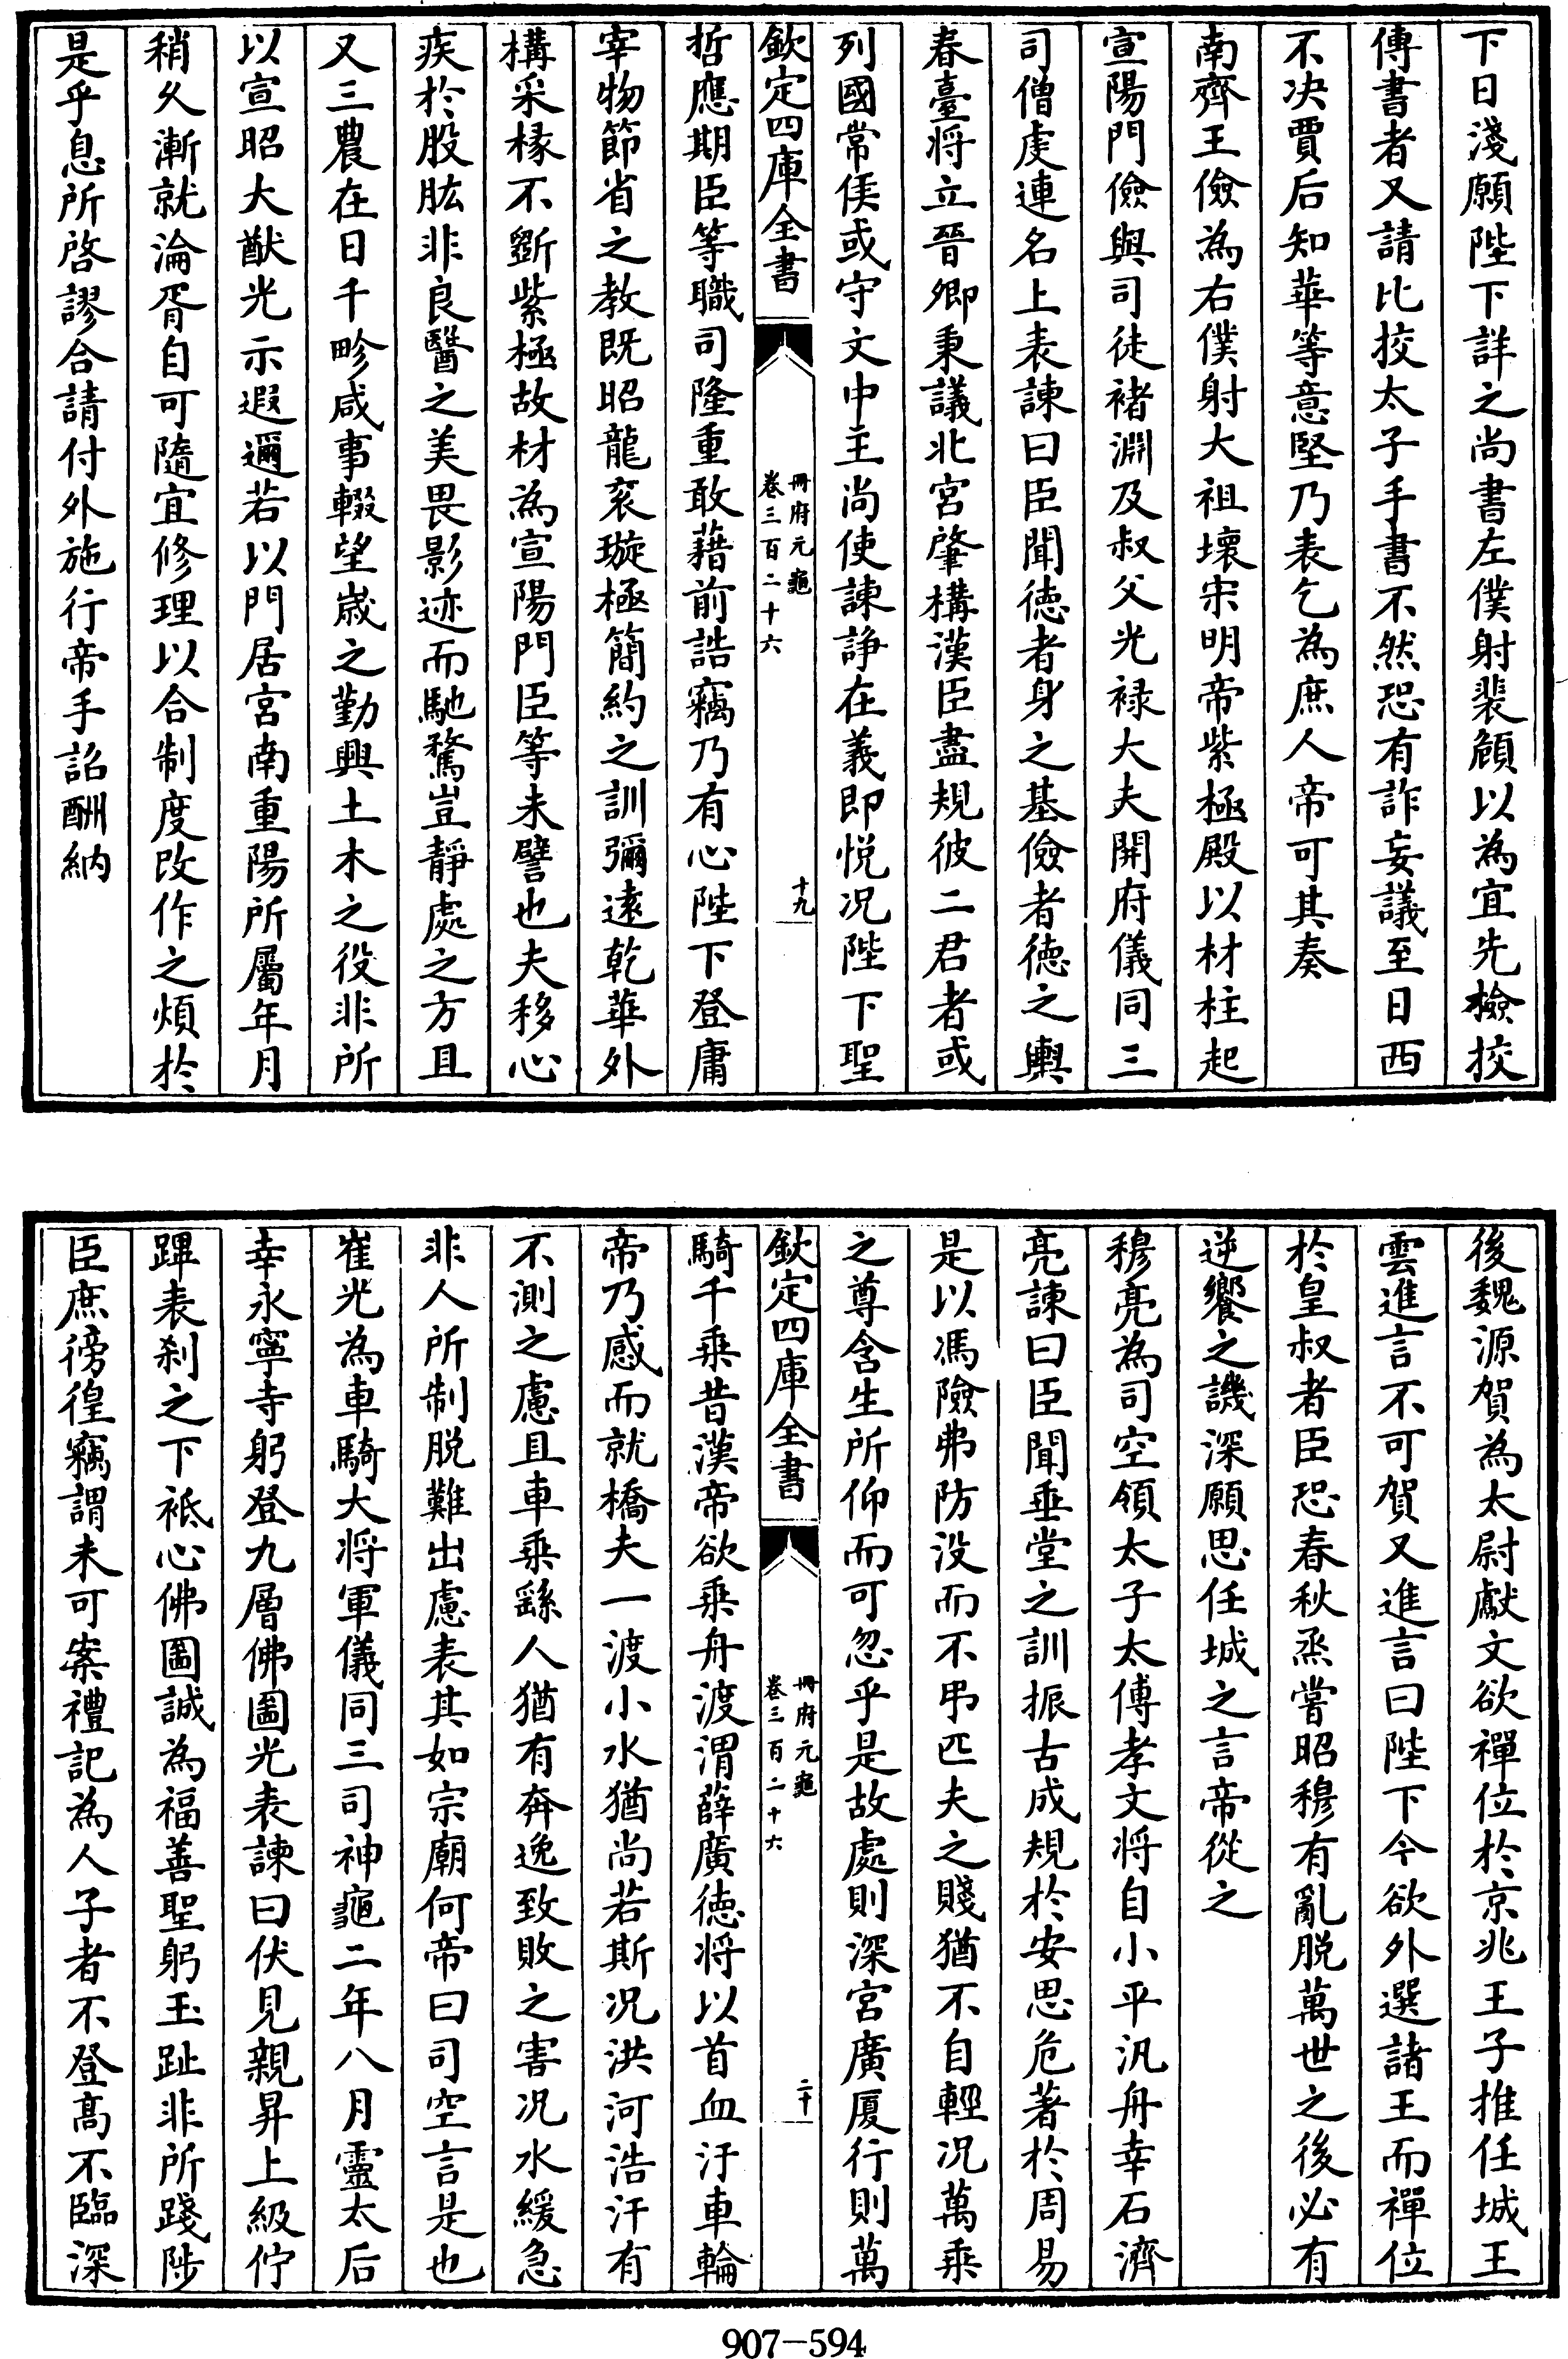 下日淺願陛下詳之尚書左僕射裴頠以為宜先檢挍
傳書者又請比挍太子手書不然恐有詐妄議至日西
不决賈后知華等意堅乃表乞為庶人帝可其奏
南齊王儉為右僕射大祖壞宋明帝紫極殿以材柱起
宣陽門儉與司徒褚淵及叔父光禄大夫開府儀同三
司僧虔連名上表諫曰臣聞徳者身之基儉者徳之輿
春臺将立晉卿秉議北宮肇構漢臣盡規彼二君者或
列國常侯或守文中主尚使諫諍在義即悦况陛下聖
欽定四庫全書
冊府元龜
卷三百二十六
十九
哲應期臣等職司隆重敢藉前誥竊乃有心陛下登庸
宰物節省之教既昭龍衮璇極簡約之訓彌遠乾華外
構采椽不斵紫極故材為宣陽門臣等未譬也夫移心
疾於股肱非良醫之美畏影迹而馳騖豈靜處之方且
又三農在日千畛咸事輟望嵗之勤興土木之役非所
以宣昭大猷光示遐邇若以門居宮南重陽所屬年月
稍久漸就淪胥自可隨宜修理以合制度改作之煩於
是乎息所啓謬合請付外施行帝手詔酬納
後魏源賀為太尉獻文欲禪位於京兆王子推任城王
雲進言不可賀又進言曰陛下今欲外選諸王而禪位
於皇叔者臣恐春秋烝嘗昭穆有亂脱萬世之後必有
逆饗之譏深願思任城之言帝從之
穆亮為司空領太子太傅孝文将自小平汎舟幸石濟
亮諫曰臣聞垂堂之訓振古成規於安思危著於周易
是以馮險弗防没而不弔匹夫之賤猶不自輕况萬乘
之尊含生所仰而可忽乎是故處則深宮廣厦行則萬
欽定四庫全書
冊府元龜
卷三百二十六
二十
騎千乘昔漢帝欲乘舟渡渭薛廣徳将以首血汙車輪
帝乃感而就橋夫一渡小水猶尚若斯况洪河浩汗有
不測之慮且車乘繇人猶有奔逸致敗之害况水緩急
非人所制脱難出慮表其如宗廟何帝曰司空言是也
崔光為車騎大将軍儀同三司神龜二年八月靈太后
幸永寧寺躬登九層佛圖光表諫曰伏見親昇上級佇
蹕表刹之下袛心佛圖誠為福善聖躬玉趾非所踐陟
臣庶徬徨竊謂未可案禮記為人子者不登高不臨深
907-594